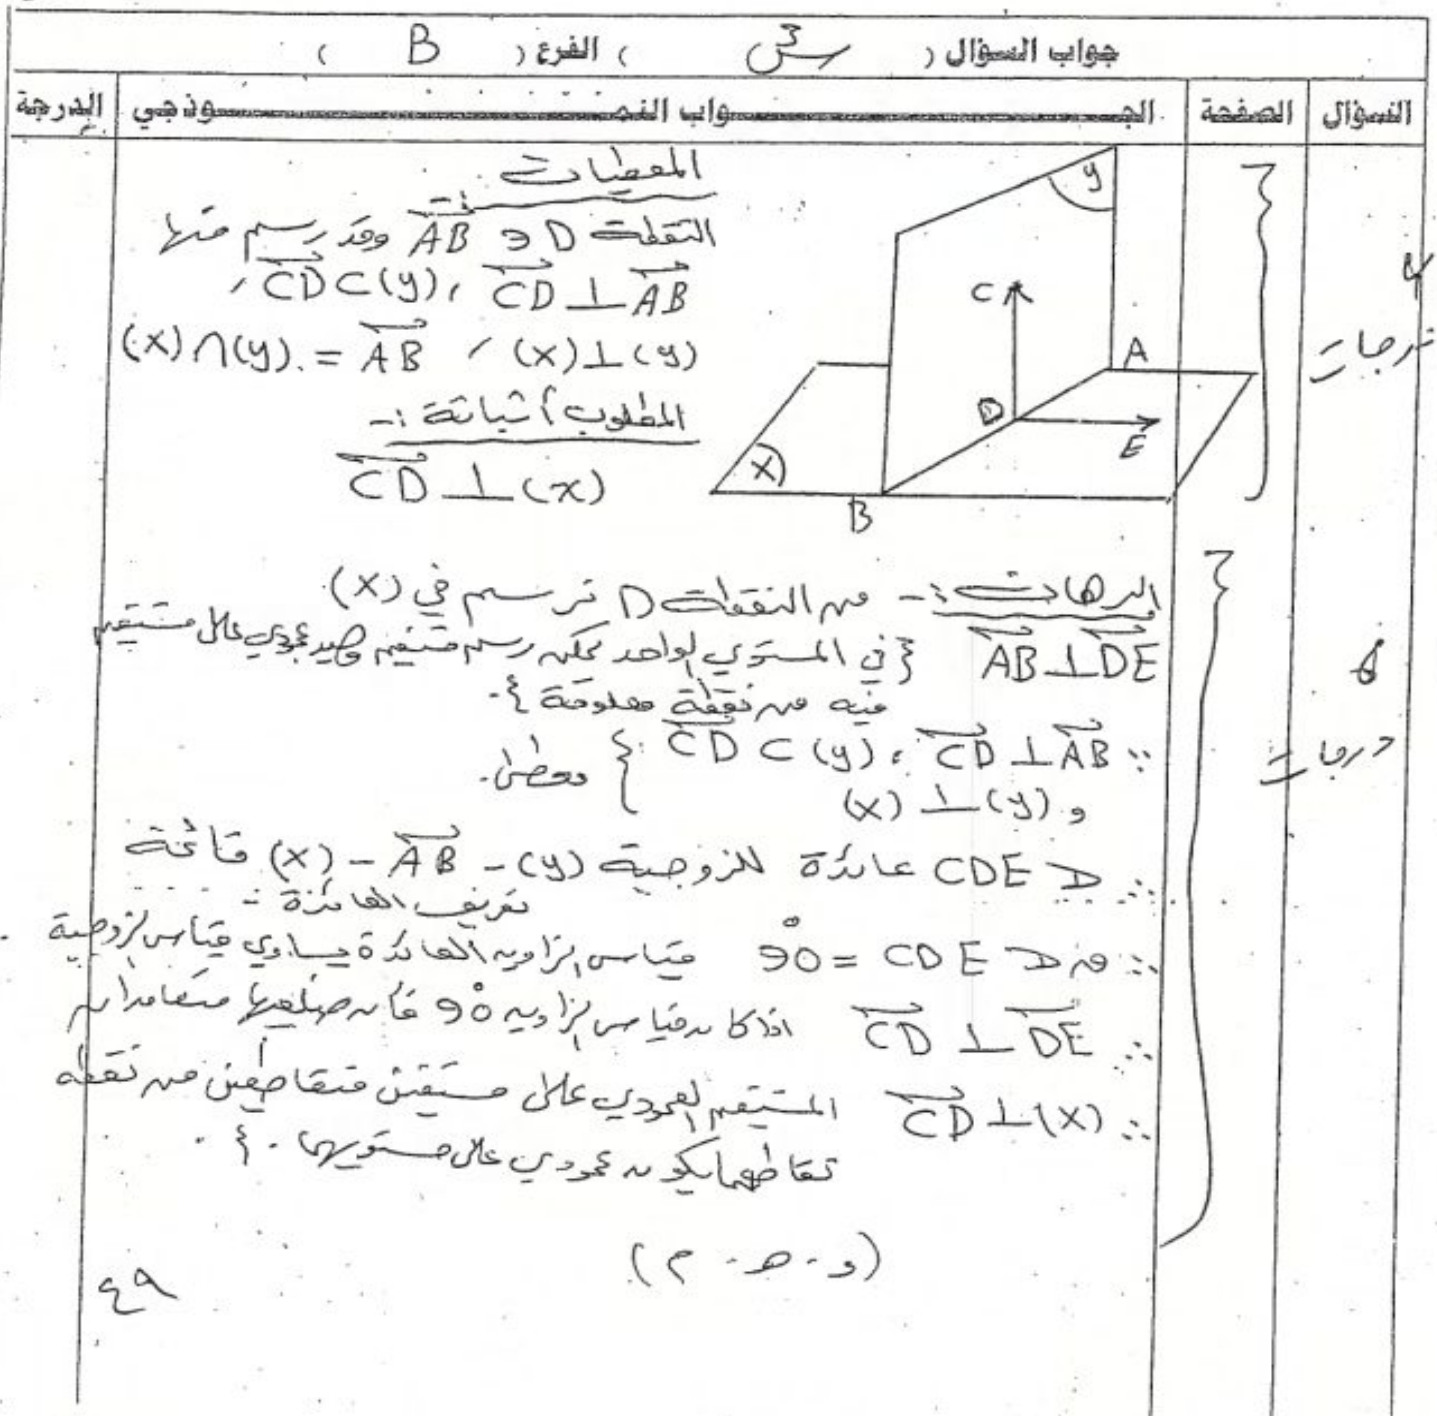 جواب السؤال ( س3 ) الفرع ( B )
السؤال الصفحة الجـــواب النمـــوذجي الدرجة
المعطيات :-
النقطة D ∈ AB وقد رسم منها
CD ⊂ (y) ، CD ⊥ AB ،
(x) ∩ (y) = AB ، (x) ⊥ (y)
المطلوب أثباته :-
CD ⊥ (x)
y
C
A
D
E
X
B
٤
درجات
البرهان :- من النقطة D نرسم في (x)
AB ⊥ DE {في المستوي الواحد يمكن رسم مستقيم وحيد عمودي على مستقيم
فيه من نقطة معلومة}.
∵ CD ⊥ AB ، CD ⊂ (y) } معطى.
و (y) ⊥ (x)
∴ ∢ CDE عائدة للزوجية (y) - AB - (x) قائمة
تعريف العائدة
∴ ق ∢ CDE = 90° قياس الزاوية العائدة يساوي قياس الزوجية
∴ CD ⊥ DE اذا كان قياس الزاوية 90° فان ضلعيها متعامدان
∴ CD ⊥ (x) المستقيم العمودي على مستقيمين متقاطعين من نقطة
تقاطعهما يكون عمودي على مستويهما . }
درجات
(و . هـ . م)
٤٩